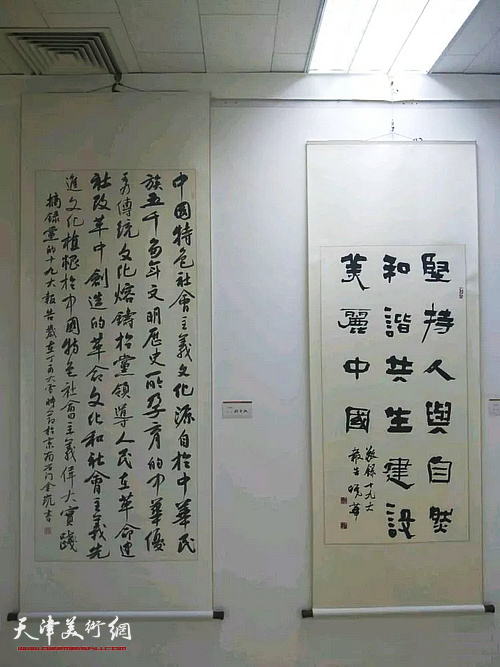 中國特色社會主義文化源自於中華民
族五千多年文明歷史所孕育的中華優
秀傳統文化熔鑄於黨領導人民在革命建
設改革中創造的革命文化和社會主義先
進文化植根於中國特色社會主義偉大實踐
摘錄黨的十九大報告歲在丁酉大雪時節於京南石門書
堅持人與自然
和諧共生建設
美麗中國
敬錄十九大
報告曉華
天津美術網